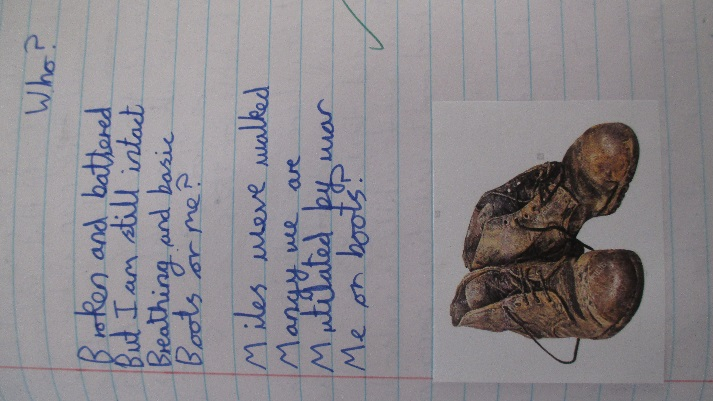 Who?
Broken and battered
But I am still intact
Breathing and basic
Boots or me?
Miles weve walked
Mangy we are
Mutilated by war
Me or boots?